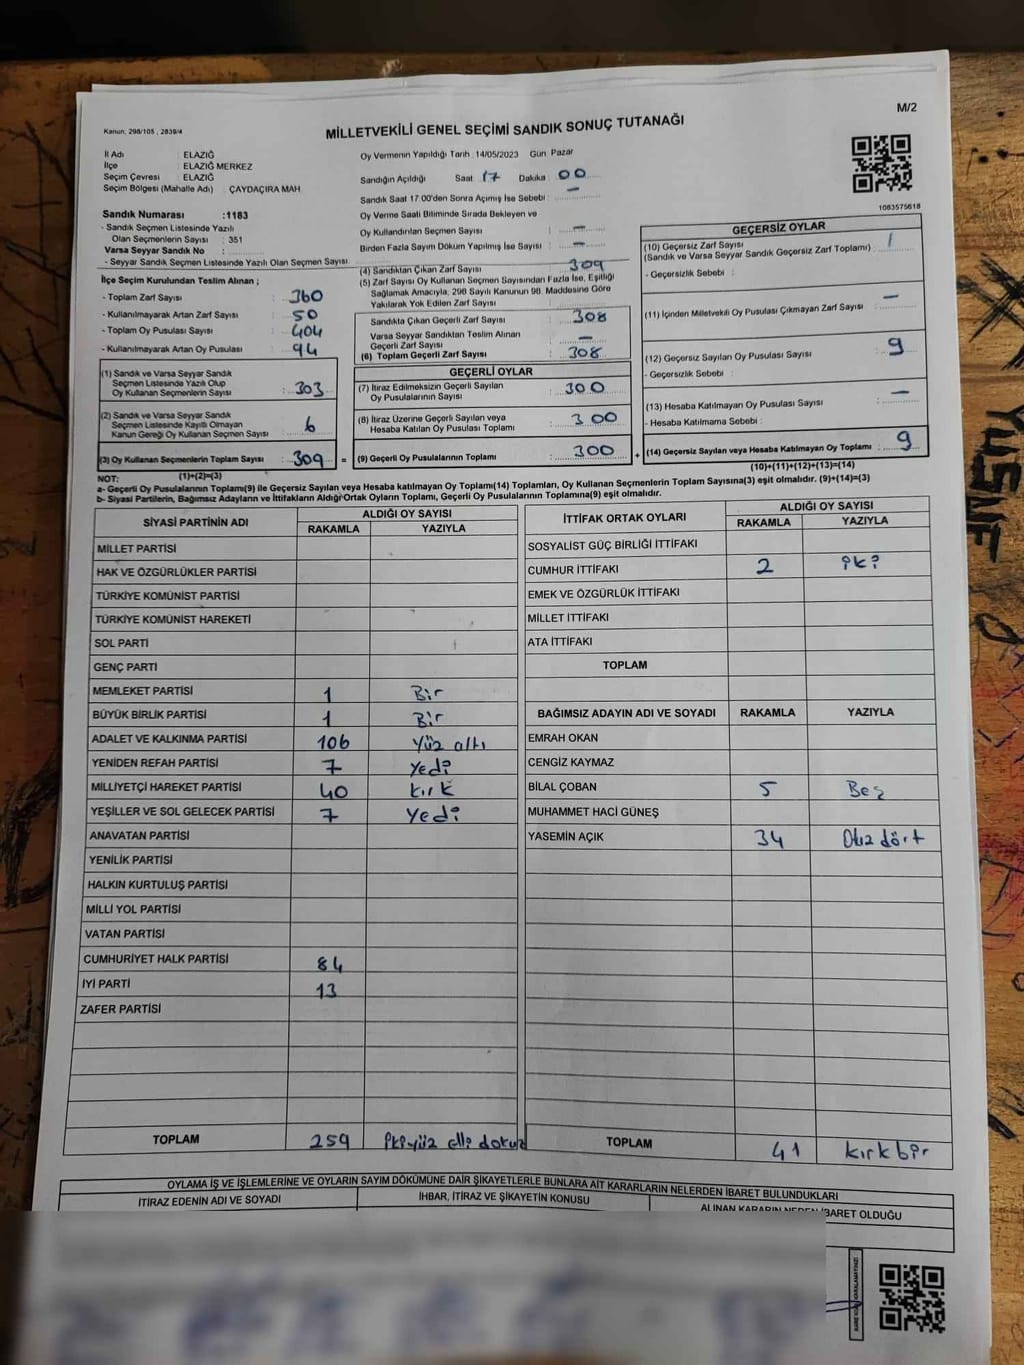 M/2
Kanun, 298/105 , 2839/4
MİLLETVEKİLİ GENEL SEÇİMİ SANDIK SONUÇ TUTANAĞI
İl Adı : ELAZIĞ
İlçe : ELAZIĞ MERKEZ
Seçim Çevresi : ELAZIĞ
Seçim Bölgesi (Mahalle Adı) : ÇAYDAÇIRA MAH.
Sandık Numarası :1183
- Sandık Seçmen Listesinde Yazılı
Olan Seçmenlerin Sayısı : 351
Varsa Seyyar Sandık No :
- Seyyar Sandık Seçmen Listesinde Yazılı Olan Seçmen Sayısı
İlçe Seçim Kurulundan Teslim Alınan ;
- Toplam Zarf Sayısı : 360
- Kullanılmayarak Artan Zarf Sayısı : 50
- Toplam Oy Pusulası Sayısı : 404
- Kullanılmayarak Artan Oy Pusulası : 94
(1) Sandık ve Varsa Seyyar Sandık
Seçmen Listesinde Yazılı Olup
Oy Kullanan Seçmen Sayısı : 303
(2) Sandık ve Varsa Seyyar Sandık
Seçmen Listesinde Kayıtlı Olmayan
Kanun Gereği Oy Kullanan Seçmen Sayısı : 6
(3) Oy Kullanan Seçmenlerin Toplam Sayısı : 309 =
(1)+(2)=(3)
Oy Vermenin Yapıldığı Tarih :14/05/2023 Gün Pazar
Sandığın Açıldığı Saat 17 Dakika : 00
Sandık Saat 17.00'den Sonra Açılmış İse Sebebi : –
Oy Verme Saati Bitiminde Sırada Bekleyen ve
Oy Kullandırılan Seçmen Sayısı : –
Birden Fazla Sayım Döküm Yapılmış İse Sayısı : –
(4) Sandıktan Çıkan Zarf Sayısı : 309
(5) Zarf Sayısı Oy Kullanan Seçmen Sayısından Fazla İse, Eşitliği
Sağlamak Amacıyla, 298 Sayılı Kanunun 98. Maddesine Göre
Yakılarak Yok Edilen Zarf Sayısı :
Sandıkta Çıkan Geçerli Zarf Sayısı : 308
Varsa Seyyar Sandıktan Teslim Alınan
Geçerli Zarf Sayısı : –
(6) Toplam Geçerli Zarf Sayısı : 308
GEÇERLİ OYLAR
(7) İtiraz Edilmeksizin Geçerli Sayılan
Oy Pusulalarının Sayısı : 300
(8) İtiraz Üzerine Geçerli Sayılan veya
Hesaba Katılan Oy Pusulası Toplamı : 300
(9) Geçerli Oy Pusulalarının Toplamı : 300 +
1083575618
GEÇERSİZ OYLAR
(10) Geçersiz Zarf Sayısı : 1
(Sandık ve Varsa Seyyar Sandık Geçersiz Zarf Toplamı)
- Geçersizlik Sebebi :
(11) İçinden Milletvekili Oy Pusulası Çıkmayan Zarf Sayısı : –
(12) Geçersiz Sayılan Oy Pusulası Sayısı : 9
- Geçersizlik Sebebi :
(13) Hesaba Katılmayan Oy Pusulası Sayısı : –
- Hesaba Katılmama Sebebi :
(14) Geçersiz Sayılan veya Hesaba Katılmayan Oy Toplamı : 9
(10)+(11)+(12)+(13)=(14)
NOT:
a- Geçerli Oy Pusulalarının Toplamı(9) ile Geçersiz Sayılan veya Hesaba katılmayan Oy Toplamı(14) Toplamları, Oy Kullanan Seçmenlerin Toplam Sayısına(3) eşit olmalıdır. (9)+(14)=(3)
b- Siyasi Partilerin, Bağımsız Adayların ve İttifakların Aldığı Ortak Oyların Toplamı, Geçerli Oy Pusulalarının Toplamına(9) eşit olmalıdır.
SİYASİ PARTİNİN ADI ALDIĞI OY SAYISI
RAKAMLA YAZIYLA
MİLLET PARTİSİ
HAK VE ÖZGÜRLÜKLER PARTİSİ
TÜRKİYE KOMÜNİST PARTİSİ
TÜRKİYE KOMÜNİST HAREKETİ
SOL PARTİ
GENÇ PARTİ
MEMLEKET PARTİSİ 1 Bir
BÜYÜK BİRLİK PARTİSİ 1 Bir
ADALET VE KALKINMA PARTİSİ 106 Yüz altı
YENİDEN REFAH PARTİSİ 7 Yedi
MİLLİYETÇİ HAREKET PARTİSİ 40 kırk
YEŞİLLER VE SOL GELECEK PARTİSİ 7 Yedi
ANAVATAN PARTİSİ
YENİLİK PARTİSİ
HALKIN KURTULUŞ PARTİSİ
MİLLİ YOL PARTİSİ
VATAN PARTİSİ
CUMHURİYET HALK PARTİSİ 84
İYİ PARTİ 13
ZAFER PARTİSİ
TOPLAM 259 ikiyüz elli dokuz
İTTİFAK ORTAK OYLARI ALDIĞI OY SAYISI
RAKAMLA YAZIYLA
SOSYALİST GÜÇ BİRLİĞİ İTTİFAKI
CUMHUR İTTİFAKI 2 iki
EMEK VE ÖZGÜRLÜK İTTİFAKI
MİLLET İTTİFAKI
ATA İTTİFAKI
TOPLAM
BAĞIMSIZ ADAYIN ADI VE SOYADI RAKAMLA YAZIYLA
EMRAH OKAN
CENGİZ KAYMAZ
BİLAL ÇOBAN 5 Beş
MUHAMMET HACİ GÜNEŞ
YASEMİN AÇIK 34 Otuz dört
TOPLAM 41 kırk bir
OYLAMA İŞ VE İŞLEMLERİNE VE OYLARIN SAYIM DÖKÜMÜNE DAİR ŞİKAYETLERLE BUNLARA AİT KARARLARIN NELERDEN İBARET BULUNDUKLARI
İTİRAZ EDENİN ADI VE SOYADI İHBAR, İTİRAZ VE ŞİKAYETİN KONUSU ALINAN KARARIN NEDEN İBARET OLDUĞU